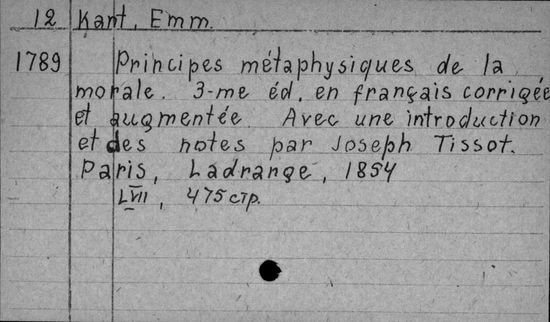 12 Kant, Emm.
1789 Principes métaphysiques de la
morale. 3-me éd. en français corrigée
et augmentée. Avec une introduction
et des notes par Joseph Tissot.
Paris, Ladrange, 1854
LVII, 475 стр.